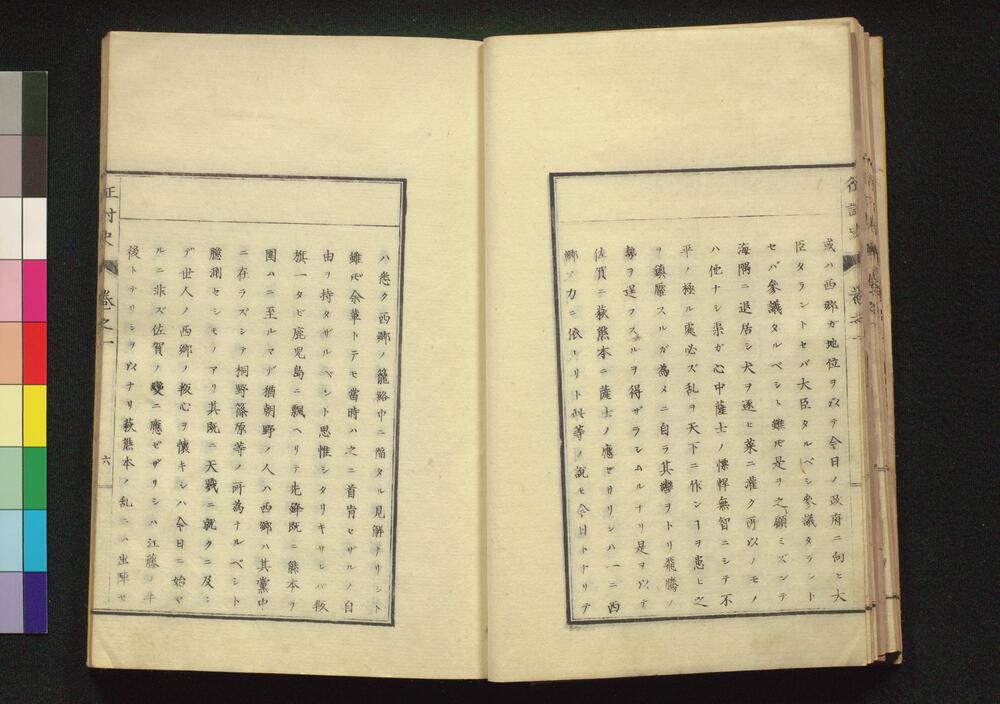 或ハ西郷ガ地位ヲ以テ今日ノ政府ニ向ヒ大
臣タラントセバ大臣タルベシ参議タラント
セバ参議タルベシト雖𪜈是ヲ之顧ミズシテ
海隅ニ退居シ犬ヲ逐ヒ菜ニ灌ク所以ノモノ
ハ他ナシ渠ガ心中薩士ノ慓悍無智ニシテ不
平ノ極ル処必ズ乱ヲ天下ニ作ンヿヲ患ヒ之
ヲ鎮壓スルガ為メニ自ラ其轡ヲトリ飛騰ノ
勢ヲ逞フスルヲ得ザラシムルナリ是ヲ以テ
佐賀ニ萩熊本ニ薩士ノ應ゼザリシハ一ニ西
郷ノ力ニ依レリト此等ノ説モ今日トナリテ
征討史 巻之一
ハ悉ク西郷ノ籠絡中ニ陥タル見解ナリシト
雖𪜈余輩トテモ當時ハ之ニ首肯セザルノ自
由ヲ持タザルベシト思惟シタリキサレバ叛
旗一タビ鹿児島ニ飄ヘリテ先鋒既ニ熊本ヲ
圍ハニ至ルマデ猶朝野ノ人ハ西郷ハ其黨中
ニ在ラズシテ桐野篠原等ノ所為ナルベシト
臆測セシモノアリ其既ニ天戮ニ就クニ及ン
デ世人ノ西郷ノ叛心ヲ懐キシハ今日ニ始マ
ルニ非ズ佐賀ノ變ニ應ゼザリシハ江藤ノ
後トナリシヲ以ナリ萩熊本ノ乱ニハ出陣セ
征討史 巻之一 六